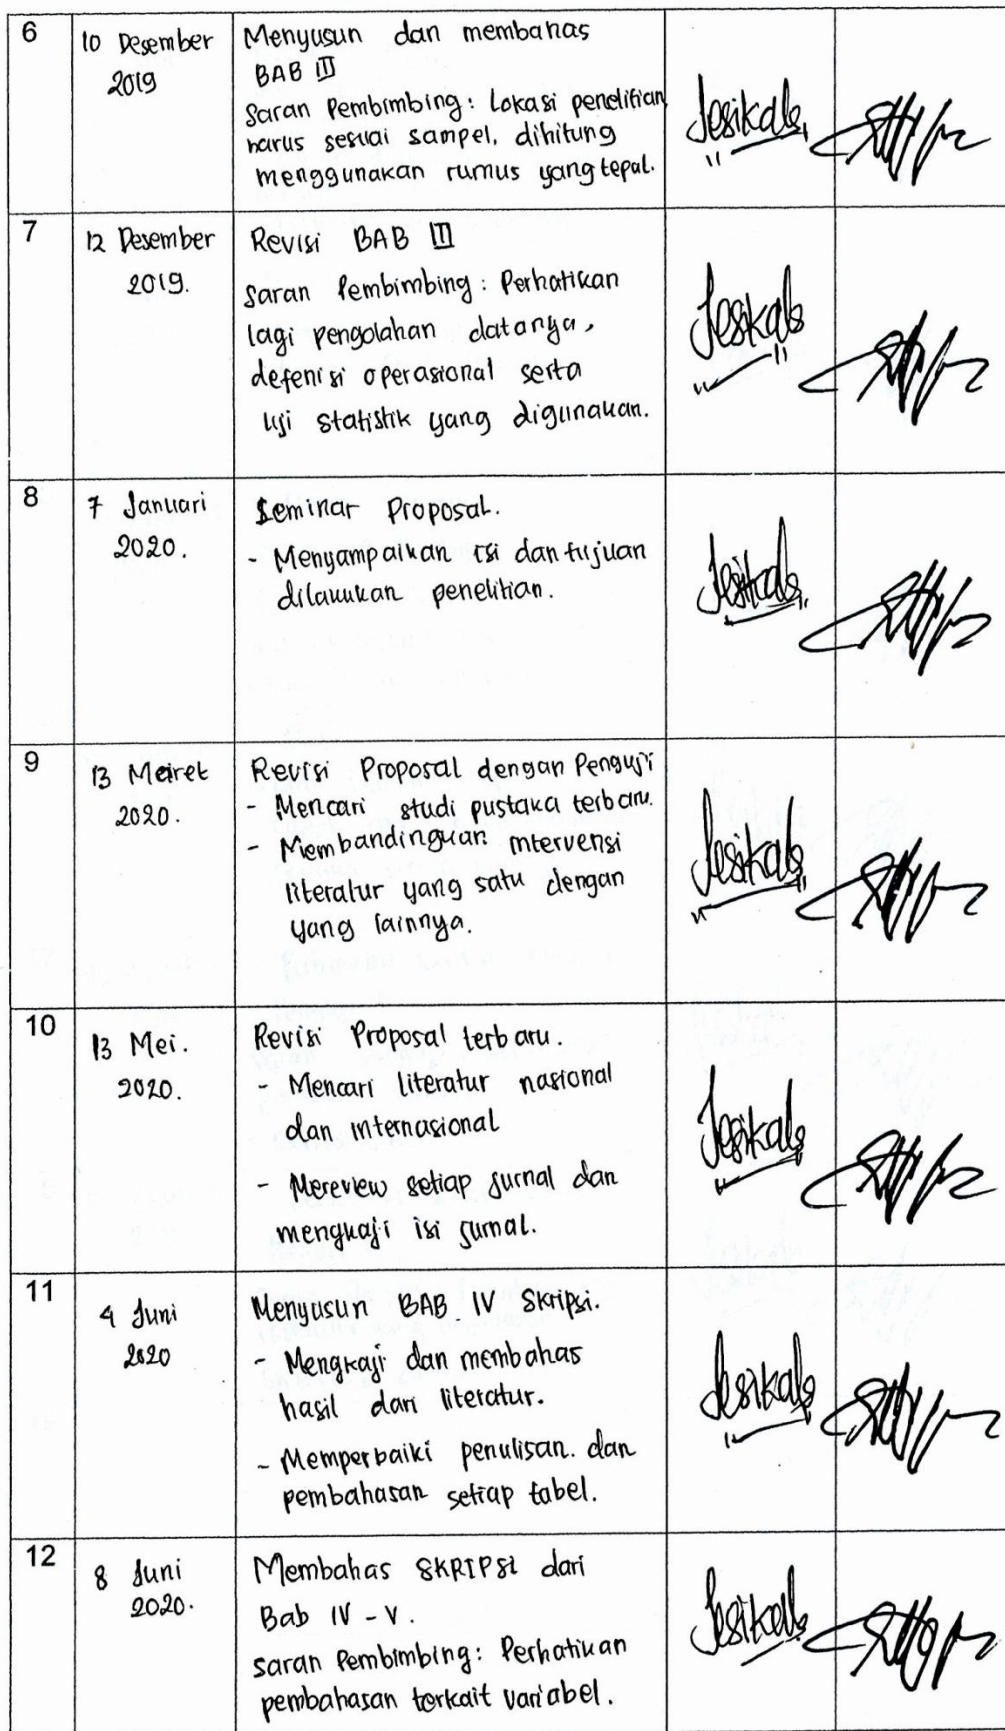 6
10 Desember
2019
Menyusun dan membahas
BAB III
Saran Pembimbing: Lokasi penelitian
harus sesuai sampel, dihitung
menggunakan rumus yang tepat.
Jesikals
7
12 Desember
2019.
Revisi BAB III
Saran Pembimbing: Perhatikan
lagi pengolahan datanya,
defenisi operasional serta
Uji statistik yang digunakan.
Jesikals
8
7 Januari
2020.
Seminar Proposal.
- Menyampaikan isi dan tujuan
dilakukan penelitian.
Jesikals
9
13 Maret
2020.
Revisi Proposal dengan Penguji
- Mencari studi pustaka terbaru.
- Membandingkan intervensi
literatur yang satu dengan
yang lainnya.
Jesikals
10
13 Mei.
2020.
Revisi Proposal terbaru.
- Mencari literatur nasional
dan internasional
- Mereview setiap jurnal dan
mengkaji isi jurnal.
Jesikals
11
4 Juni
2020
Menyusun BAB IV Skripsi.
- Mengkaji dan membahas
hasil dari literatur.
- Memperbaiki penulisan. dan
pembahasan setiap tabel.
Jesikals
12
8 Juni
2020.
Membahas SKRIPSI dari
Bab IV - V.
saran Pembimbing: Perhatikan
pembahasan terkait variabel.
Jesikals